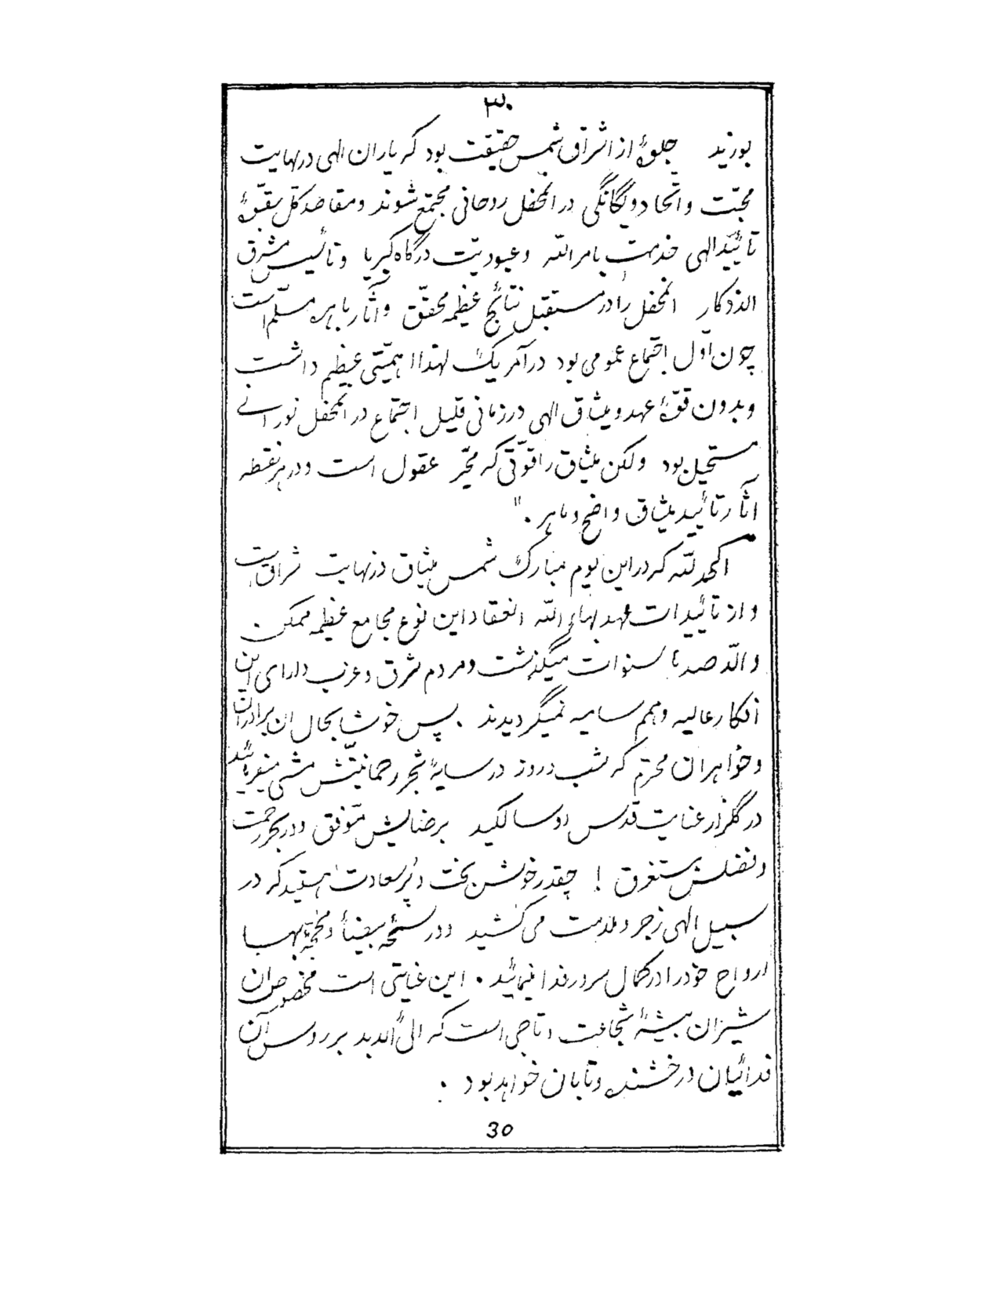 ۳۰
بورزید جلوهٔ از اشراق شمس حقیقت بود که یاران الهی در نهایت
محبّت و اتحاد و یگانگی در انمحفل روحانی مجتمع شوند و مقاصد کلّ بقوّهٔ
تائید الهی خدمت بامر الله و عبودیّت درگاه کبریا و تأسیس مشرق
الاذکار انمحفل را در مستقبل نتائج عظیمه محقّق و آثار باهره مسلّم است
چون اوّل اجتماع عمومی بود در آمریک لهذا اهمیّتی عظیم داشت
و بدون قوّهٔ عهد و میثاق الهی در زمانی قلیل اجتماع در انمحفل نورانی
مستحیل بود ولکن میثاق را قوّتی که محیّر عقول است و در هر نقطه
آثار تائید میثاق واضح و باهر ."
الحمد لله که در این یوم مبارک شمس میثاق در نهایت اشراق است
و از تائیدات عهد بهاء الله انعقاد این نوع مجامع عظیمه ممکن
والّا صدها سنوات میگذشت و مردم شرق و غرب دارای این
افکار عالیه و همم سامیه نمیگردیدند . پس خوشا بحال ان برادران
و خواهران محترم که شب و روز در سایهٔ شجر رحمانیّتش مشی میفرمائید
در گلزار عنایت قدس او سالکید برضایش متوفّق و در بحر رحمت
و فضلش مستغرق ! چقدر خوش بخت و پر سعادت هستید که در
سبیل الهی زجر و ملامت می‌کشید و در سفحهٔ بیضأ و محجّهٔ بها
ارواح خود را در کمال سرور فدا مینمائید . این عنایتی است مخصوص ان
شیران بیشهٔ شجاعت و تاجی است که الی الابد بر رؤس آن
فدائیان درخشنده و تابان خواهد بود .
30